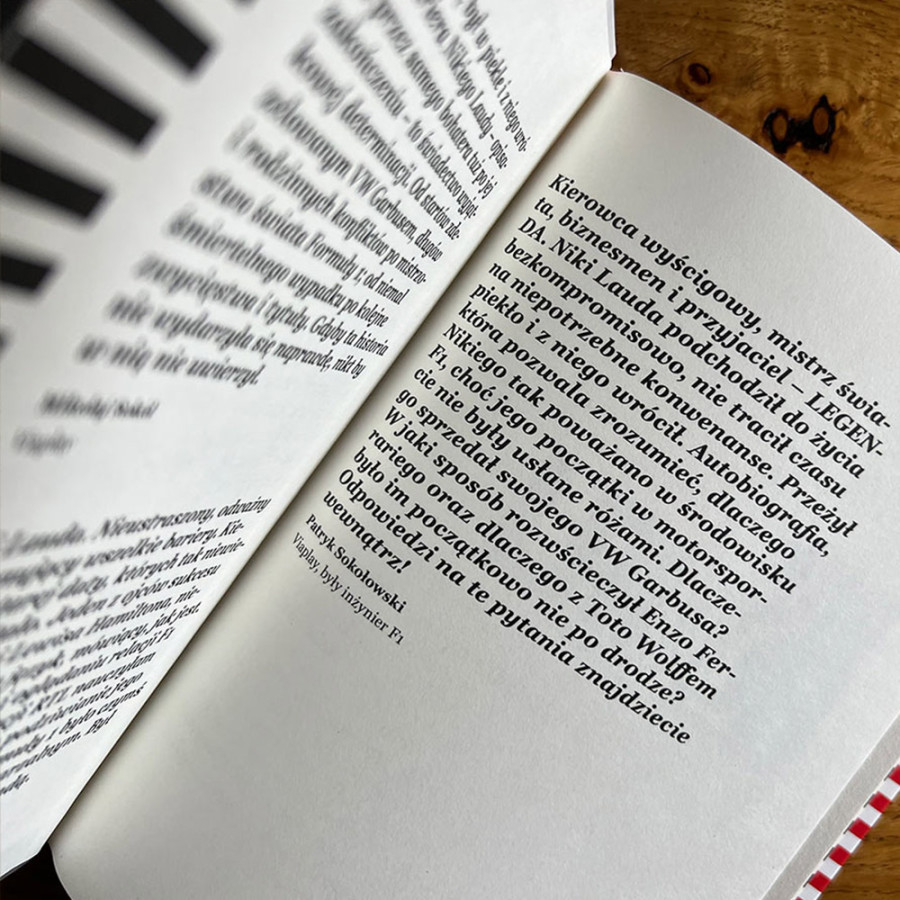 był w piekle i z niego wró-
riera Nikiego Laudy – opisa-
przez samego bohatera tuż po jej
zakończeniu – to świadectwo wyjąt-
kowej determinacji. Od startów zde-
zelowanym VW Garbusem, długów
i rodzinnych konfliktów po mistrzo-
stwo świata Formuły 1; od niemal
śmiertelnego wypadku po kolejne
zwycięstwa i tytuły. Gdyby ta historia
nie wydarzyła się naprawdę, nikt by
w nią nie uwierzył.
Mikołaj Sokół
Viaplay
Lauda. Nieustraszony, odważny
wszelkie bariery. Kie-
których tak niewie-
Jeden z ojców sukcesu
Lewisa Hamiltona, nie-
mówiący, jak jest.
oglądaniu relacji F1
RTL nauczyłam
podziwianie jego
było czymś
Był
Kierowca wyścigowy, mistrz świa-
ta, biznesmen i przyjaciel – LEGEN-
DA. Niki Lauda podchodził do życia
bezkompromisowo, nie tracił czasu
na niepotrzebne konwenanse. Przeżył
piekło i z niego wrócił. Autobiografia,
która pozwala zrozumieć, dlaczego
Nikiego tak poważano w środowisku
F1, choć jego początki w motorspor-
cie nie były usłane różami. Dlacze-
go sprzedał swojego VW Garbusa?
W jaki sposób rozwścieczył Enzo Fer-
rariego oraz dlaczego z Toto Wolffem
było im początkowo nie po drodze?
Odpowiedzi na te pytania znajdziecie
wewnątrz!
Patryk Sokołowski
Viaplay, były inżynier F1